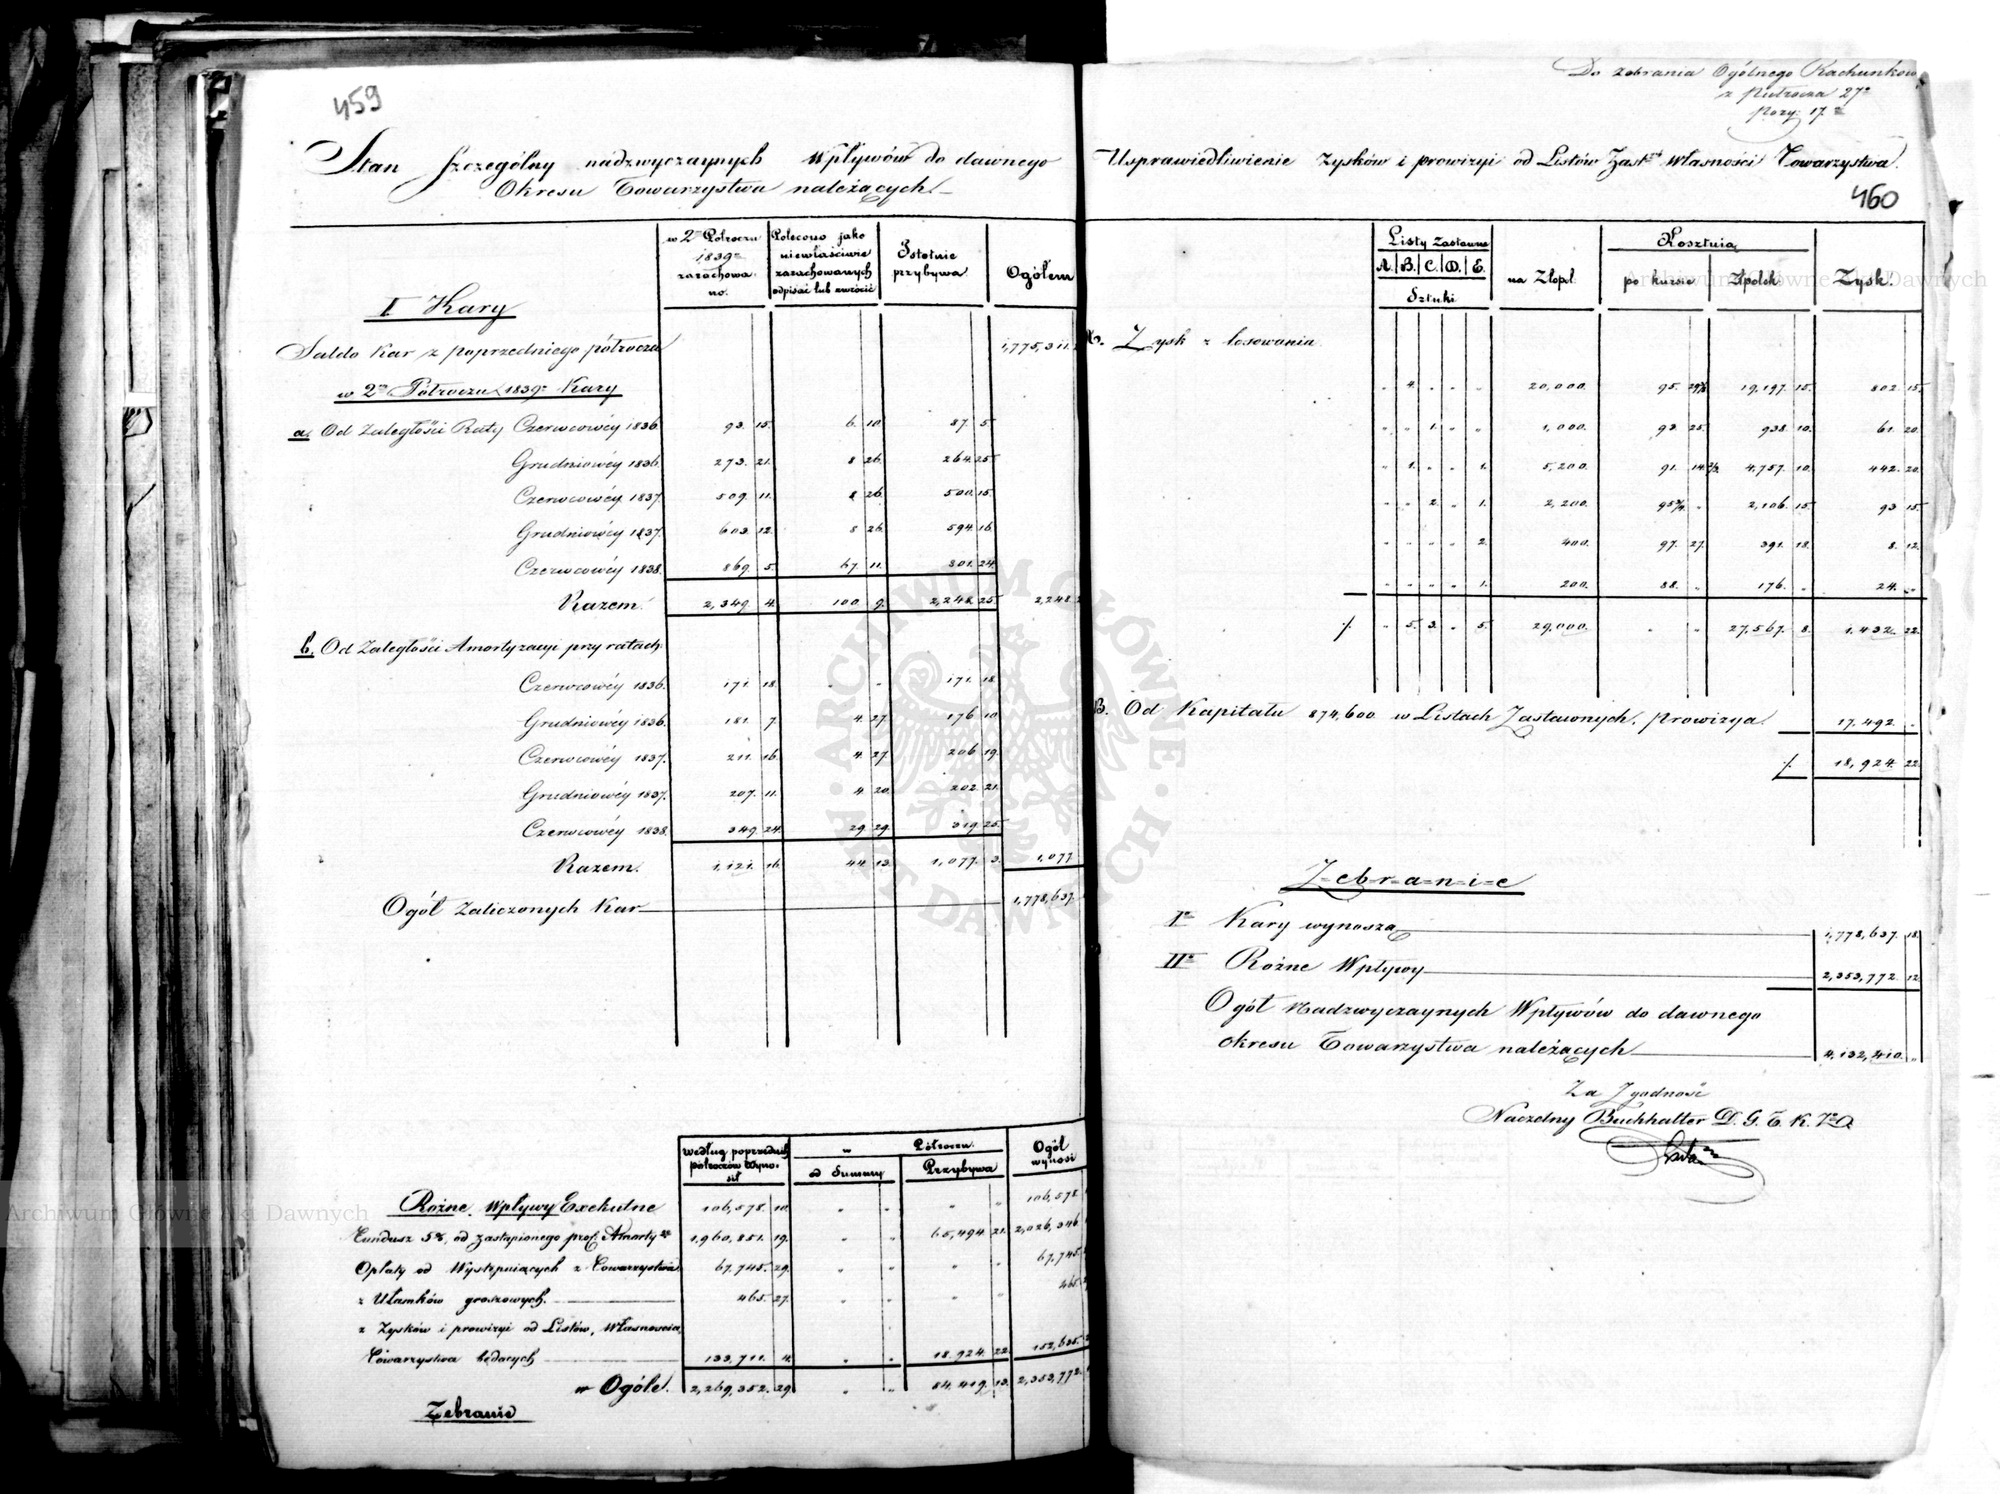 459
Stan Szczególny nadzwyczaynych Wpływów do dawnego
Okresu Towarzystwa należących
w 2m Półroczu 1839r zarachowano.
Polecono jako niewłaściwie zarachowanych odpisać lub zwrócić
Istotnie przybywa
Ogółem
I Kary
Saldo Kar z poprzedniego półrocza 1,775,311.
w 2m Półroczu 1839r Kary
a. Od Zaległości Raty Czerwcowéy 1836. 93. 15. 6. 10. 87. 5.
Grudniowéy 1836. 273. 21. 8 26. 264. 25.
Czerwcowéy 1837. 509. 11. 8 26. 500. 15.
Grudniowéy 1837. 603. 12. 8 26. 594. 16.
Czerwcowéy 1838. 869. 5. 67. 11. 801. 24.
Razem. 2,349. 4. 100. 9. 2,248. 25. 2,248.
b. Od Zaległości Amortyzacyi przy ratach.
Czerwcowéy 1836. 171. 18. " " 171. 18.
Grudniowéy 1836. 181. 7. 4. 27. 176 10.
Czerwcowéy 1837. 211. 16. 4. 27. 206 19.
Grudniowéy 1837. 207. 11. 4. 20. 202. 21.
Czerwcowéy 1838. 349. 24. 29. 29. 319. 25.
Razem. 1,121. 16. 44. 13. 1,077. 3. 1,077
Ogół Zaliczonych Kar 1,778,637.
Według poprzednich półroczów wynosił
w Półroczu
od Summy
Przybywa
Ogół wynosi
Rożne Wpływy Exekutne 106,578. 10. " " " " 106,578.
Fundusz 5% od zastąpionego prof. Amorty 1,960,851. 19. " " 65,494 21. 2,026,346
Opłaty od Występuiących z Towarzystwa 67,745. 29. " " " " 67,745.
z Ułamków groszowych. 465. 27. " " " " 465.
z Zysków i prowizyi od Listów, Własnością
Towarzystwa będacych 133,711. 4. " " 18.924. 22. 152,635.
w Ogóle. 2,269,352. 29. " " 84,419. 13. 2,353,772.
Zebranie
Do zebrania Ogólnego Rachunków
z Półrocza 27o
Pozy: 17.
Usprawiedliwienie Zysków i prowizyi od Listów Zastch Własności Towarzystwa.
460
Listy Zastawne
A. B. C. D. E.
Sztuki
na Złopl.
Kosztuią
po kursie
Złpolsk.
Zysk.
A. Zysk z losowania.
" 4. " " " 20,000. 95. 29⅝ 19,197. 15. 802. 15.
" " 1. " " 1,000. 93. 25. 938. 10. 61. 20.
" 1. " " 1. 5,200. 91. 14 4,757. 10. 442. 20.
" " 2. " 1. 2,200. 95¾ " 2,106. 15. 93 15.
" " " " 2. 400. 97. 27. 391. 18. 8. 12.
" " " " 1. 200. 88. " 176. " 24. "
% " 5. 3. " 5. 29,000. " " 27,567. 8. 1,432. 22.
B. Od Kapitału 874,600 w Listach Zastawnych. prowizya. 17.492. "
% 18,924. 22.
Zebranie
Io Kary wynoszą 1,778,637. 18.
IIo Rożne Wpływy 2,353,772. 12
Ogół Nadzwyczaynych Wpływów do dawnego
okresu Towarzystwa należących 4,132,410. "
Za Zgodność
Naczelny Buchhalter D. G. T. K. Zo
Archiwum Główne Akt Dawnych
ARCHIWUM GŁÓWNE AKT DAWNYCH
Archiwum Główne Akt Dawnych